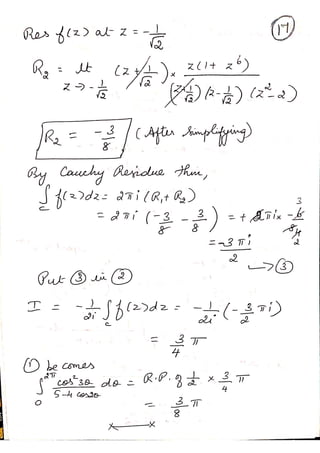 Res f(z) at z = -1/√2
(17)
R₂ = lt z→-1/√2 (z+1/√2) × z(1+z⁶) / (z+1/√2)(z-1/√2)(z²-2)
R₂ = -3/8 (After simplifying)
By Cauchy Residue thm,
∫_c f(z)dz = 2πi (R₁+R₂)
= 2πi (-3/8 - 3/8) = + 2πi × -6/8 3 4 2
= -3πi/2 → ③
Put ③ in ②
I = -1/2i ∫_c f(z)dz = -1/2i (-3/2 πi)
= 3/4 π
① be comes
∫₀^2π cos²3θ / 5-4cos2θ dθ = R.P. of 1/2 × 3/4 π
= 3/8 π
×———×